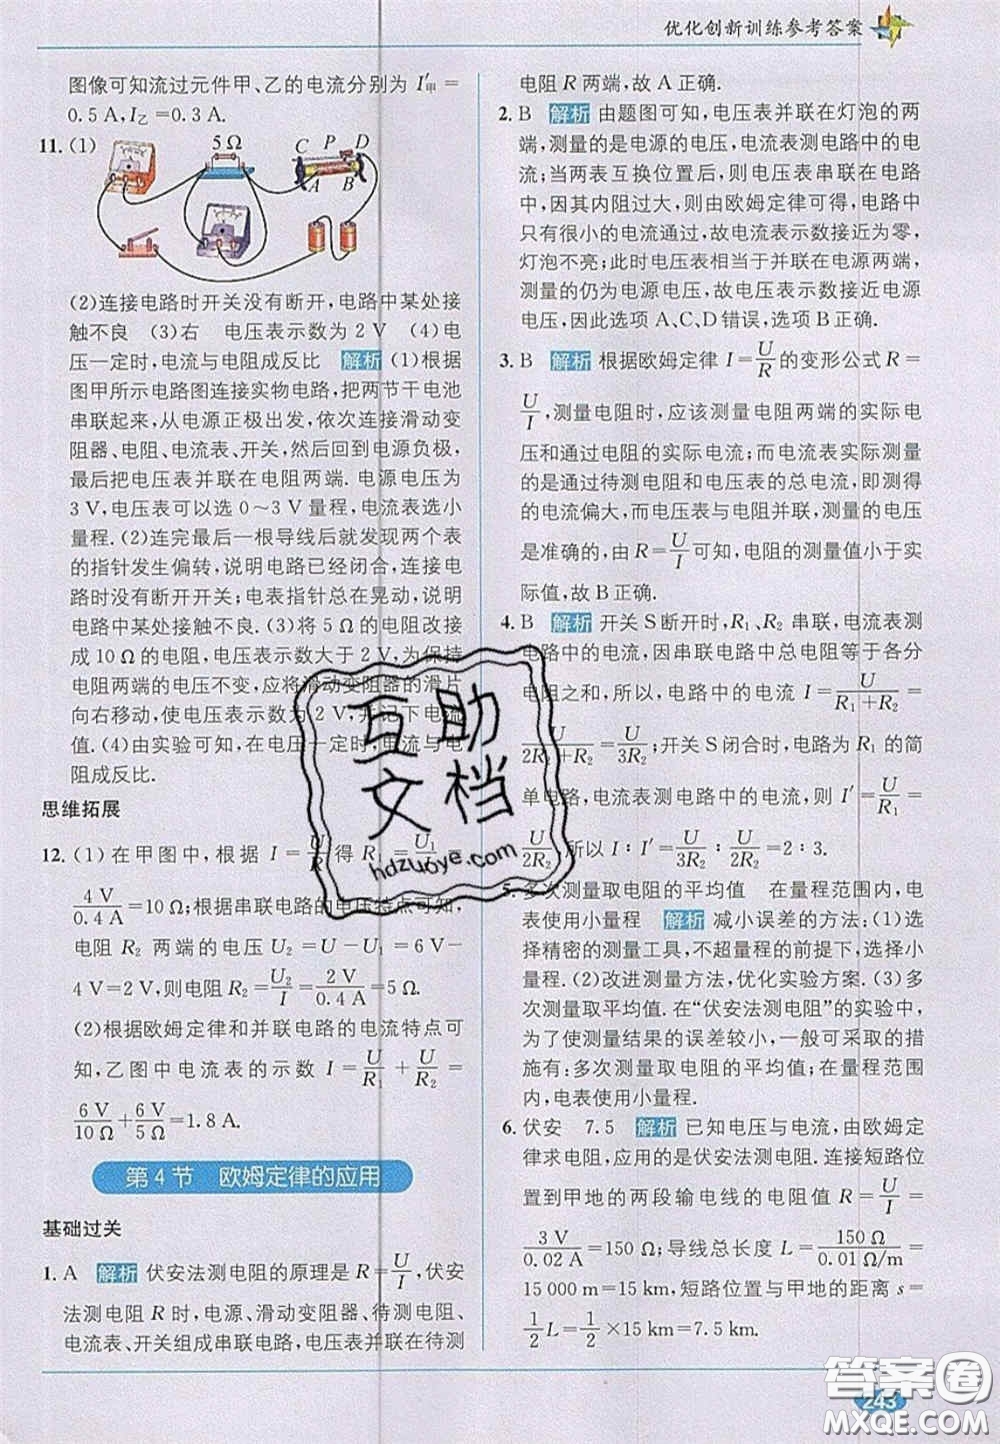 优化创新训练参考答案
图像可知流过元件甲、乙的电流分别为 I′甲=
0.5 A,I乙=0.3 A.
11. (1)
5 Ω
C P D
A B
(2)连接电路时开关没有断开,电路中某处接
触不良 (3)右 电压表示数为 2 V (4)电
压一定时,电流与电阻成反比 解析 (1)根据
图甲所示电路图连接实物电路,把两节干电池
串联起来,从电源正极出发,依次连接滑动变
阻器、电阻、电流表、开关,然后回到电源负极,
最后把电压表并联在电阻两端.电源电压为
3 V,电压表可以选 0～3 V 量程,电流表选小
量程.(2)连完最后一根导线后就发现两个表
的指针发生偏转,说明电路已经闭合,连接电
路时没有断开开关;电表指针总在晃动,说明
电路中某处接触不良.(3)将 5 Ω 的电阻改接
成 10 Ω 的电阻,电压表示数大于 2 V,为保持
电阻两端的电压不变,应将滑动变阻器的滑片
向右移动,使电压表示数为 2 V,并记下电流
值.(4)由实验可知,在电压一定时,电流与电
阻成反比.
思维拓展
12. (1) 在甲图中,根据 I=U/R得 R1=U1/I=
4 V/0.4 A=10 Ω;根据串联电路的电压特点可知,
电阻 R2 两端的电压 U2=U−U1=6 V−
4 V=2 V,则电阻 R2=U2/I=2 V/0.4 A=5 Ω.
(2)根据欧姆定律和并联电路的电流特点可
知,乙图中电流表的示数 I=U/R1+U/R2=
6 V/10 Ω+6 V/5 Ω=1.8 A.
第 4 节 欧姆定律的应用
基础过关
1. A 解析 伏安法测电阻的原理是 R=U/I,伏安
法测电阻 R 时,电源、滑动变阻器、待测电阻、
电流表、开关组成串联电路,电压表并联在待测
电阻 R 两端,故 A 正确.
2. B 解析 由题图可知,电压表并联在灯泡的两
端,测量的是电源的电压,电流表测电路中的电
流;当两表互换位置后,则电压表串联在电路
中,因其内阻过大,则由欧姆定律可得,电路中
只有很小的电流通过,故电流表示数接近为零,
灯泡不亮;此时电压表相当于并联在电源两端,
测量的仍为电源电压,故电压表示数接近电源
电压,因此选项 A、C、D 错误,选项 B 正确.
3. B 解析 根据欧姆定律 I=U/R的变形公式 R=
U/I,测量电阻时,应该测量电阻两端的实际电
压和通过电阻的实际电流;而电流表实际测量
的是通过待测电阻和电压表的总电流,即测得
的电流偏大,而电压表与电阻并联,测量的电压
是准确的,由 R=U/I可知,电阻的测量值小于实
际值,故 B 正确.
4. B 解析 开关 S 断开时,R1、R2 串联,电流表测
电路中的电流,因串联电路中总电阻等于各分
电阻之和,所以,电路中的电流 I=U/(R1+R2)=
U/(2R2+R2)=U/3R2;开关 S 闭合时,电路为 R1 的简
单电路,电流表测电路中的电流,则 I′=U/R1=
U/2R2,所以 I∶I′=U/3R2∶U/2R2=2∶3.
5. 多次测量取电阻的平均值 在量程范围内,电
表使用小量程 解析 减小误差的方法:(1)选
择精密的测量工具,不超量程的前提下,选择小
量程.(2)改进测量方法,优化实验方案.(3)多
次测量取平均值.在“伏安法测电阻”的实验中,
为了使测量结果的误差较小,一般可采取的措
施有:多次测量取电阻的平均值;在量程范围
内,电表使用小量程.
6. 伏安 7.5 解析 已知电压与电流,由欧姆定
律求电阻,应用的是伏安法测电阻.连接短路位
置到甲地的两段输电线的电阻值 R=U/I=
3 V/0.02 A=150 Ω;导线总长度 L=150 Ω/0.01 Ω/m=
15 000 m=15 km,短路位置与甲地的距离 s=
1/2L=1/2×15 km=7.5 km.
243
互助
文档
hdzuoye.com
答案圈
MXQE.COM